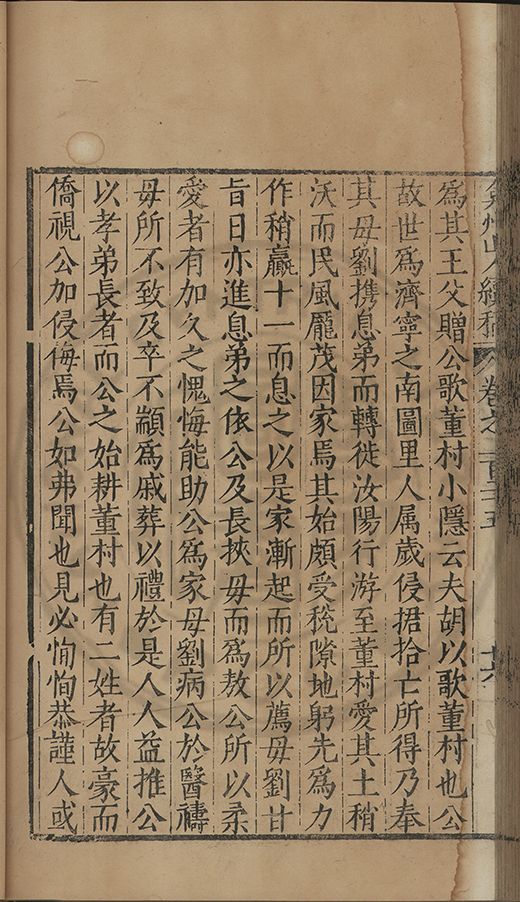 弇州山人續稿 卷之一百三十五 十六
爲其王父贈公歌董村小隱云夫胡以歌董村也公
故世爲濟寧之南圖里人属歲侵捃拾亡所得乃奉
其毋劉携息弟而轉徙汝陽行游至董村愛其土稍
沃而民風龐茂因家焉其始頗受稅隙地躬先爲力
作稍贏十一而息之以是家漸起而所以薦毋劉甘
旨日亦進息弟之依公及長挾毋而爲敖公所以柔
愛者有加久之愧悔能助公爲家毋劉病公於醫禱
毋所不致及卒不顓爲戚葬以禮於是人人益推公
以孝弟長者而公之始耕董村也有二姓者故豪而
僑視公加侵侮焉公如弗聞也見必恂恂恭謹人或